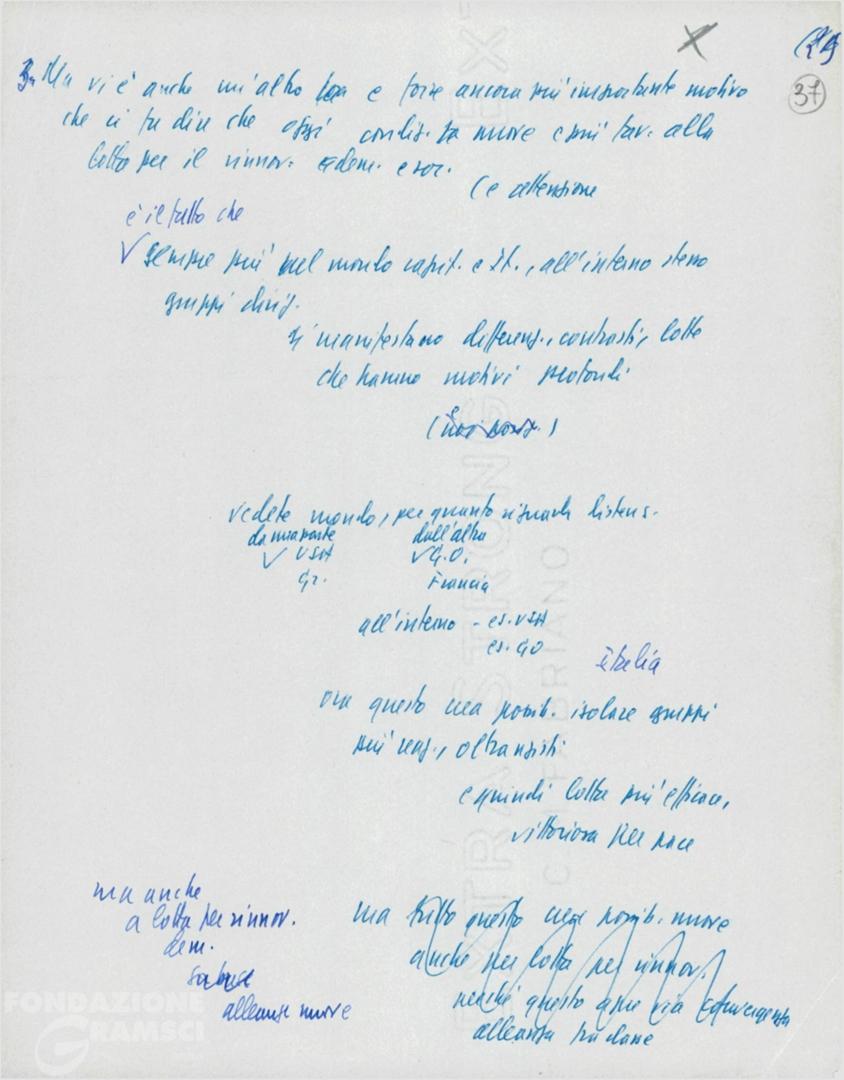 37
Ma vi è anche un'altro e forse ancora più importante motivo
che ci fa dire che oggi condiz. sono nuove e più fav. alla
lotta per il rinnov. dem. e soc.
(e attenzione
è il fatto che
sempre più nel mondo capit. e st., all'interno stesso
gruppi dirig.
si manifestano differenz., contrasti, lotte
che hanno motivi profondi
vedete mondo, per quanto riguarda distens.
da una parte dall'altra
USA G.O.
Francia
all'interno - es. USA
es. GO
Italia
ora questo crea possib. isolare gruppi
più reaz., oltranzisti
e quindi lotta più efficace,
vittoriosa per pace
ma anche
a lotta per rinnov.
dem.
alleanze nuove
ma tutto questo crea possib. nuove
anche per lotta per rinnov.
perché questo apre via convergenza
alleanza tra classe
EXTRA STRONG
FABRIANO
FONDAZIONE
GRAMSCI